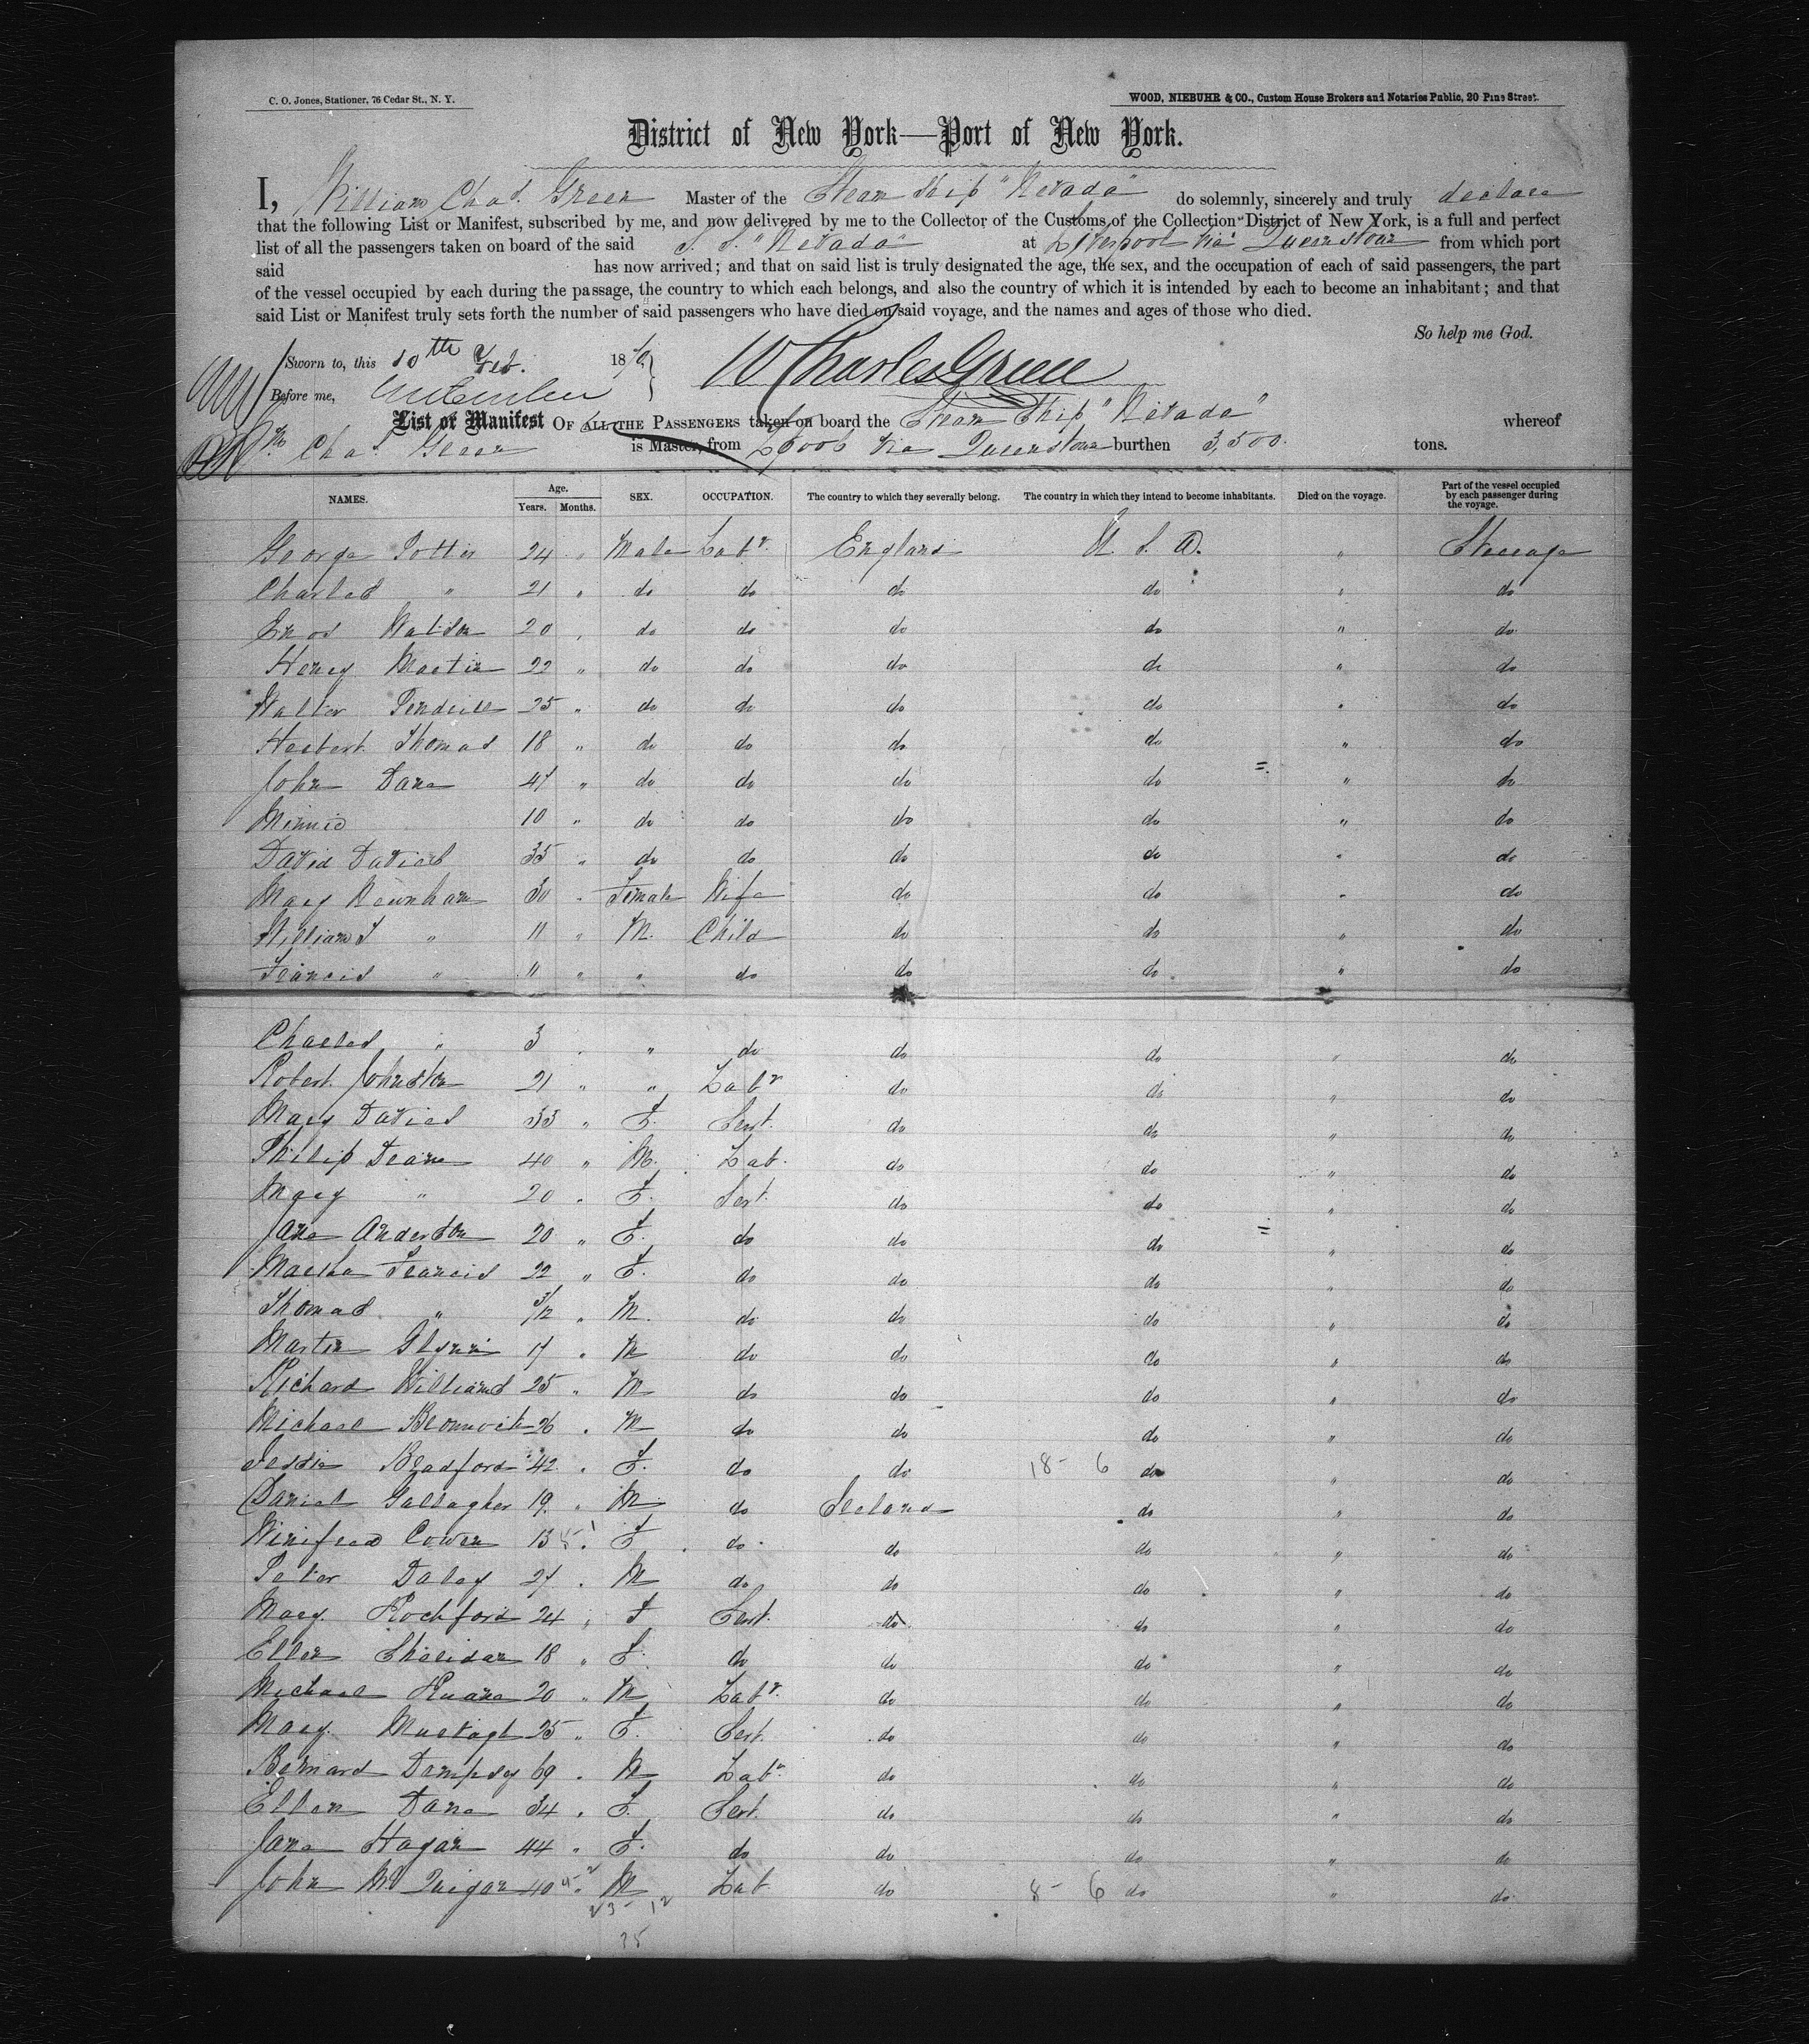 C. O. Jones, Stationer, 76 Cedar St., N. Y.
WOOD, NIEBUHR & CO., Custom House Brokers and Notaries Public, 20 Pine Street.
District of New York—Port of New York.
I, William Chas. Green Master of the Steam Ship "Nevada" do solemnly, sincerely and truly declare
that the following List or Manifest, subscribed by me, and now delivered by me to the Collector of the Customs of the Collection District of New York, is a full and perfect
list of all the passengers taken on board of the said S. S. "Nevada" at Liverpool via Queenstown from which port
said has now arrived; and that on said list is truly designated the age, the sex, and the occupation of each of said passengers, the part
of the vessel occupied by each during the passage, the country to which each belongs, and also the country of which it is intended by each to become an inhabitant; and that
said List or Manifest truly sets forth the number of said passengers who have died on said voyage, and the names and ages of those who died.
So help me God.
Sworn to, this 10th Feb. 18
W Charles Green
Before me,
List or Manifest OF ALL THE PASSENGERS taken on board the Steam Ship "Nevada" whereof
Wm. Chas. Green is Master, from L'pool via Queenstown burthen 3,500 tons.
NAMES. Age. Years. Months. SEX. OCCUPATION. The country to which they severally belong. The country in which they intend to become inhabitants. Died on the voyage. Part of the vessel occupied by each passenger during the voyage.
George Potter 24 " Male Labr. England U. S. A. " Steerage
Charles " 21 " do do do do " do
Enos Watson 20 " do do do do " do
Henry Martin 22 " do do do do " do
Walter 25 " do do do do " do
Herbert Thomas 18 " do do do do " do
John Dane " do do do do " do
Minnie 10 " do do do do " do
David Davies 35 " do do do do " do
Mary Newnham 30 " Female Wife do do " do
William J " 11 " M. Child do do " do
Francis " 11 " " do do do " do
Charles " 3 " " do do do " do
Robert Johnston 21 " " Labr do do " do
Mary Davies 33 " F. Servt. do do " do
Philip Deane 40 " M. Lab. do do " do
Mary " 20 " F. Servt. do do " do
Jane Anderson 20 " F. do do do " do
Martha Francis 22 " F. do do do " do
Thomas " 3/12 " M. do do do " do
Martin Glynn 17 " M do do do " do
Richard Williams 25 " M do do do " do
Michael 26 " M do do do " do
Jessie Bradford 42 " F. do do 18 - 6 do " do
Daniel Gallagher 19 " M. do Ireland do " do
Winifred Cowen 13 " F do do do " do
Peter Daley 27 " M do do do " do
Mary Rochford 24 " F Servt. do do " do
Ellen Sheridan 18 " F. do do do " do
Michael Ruane 20 " M Labr. do do " do
Mary Murtagh 25 " F. Servt. do do " do
Bernard Dempsey 69 " M Labr. do do " do
Ellen Dane 34 " F. Servt. do do " do
Jane Hagan 44 " F. do do do " do
John McGuigan 40 " M Lab do 8 - 6 do " do
23 - 12
35